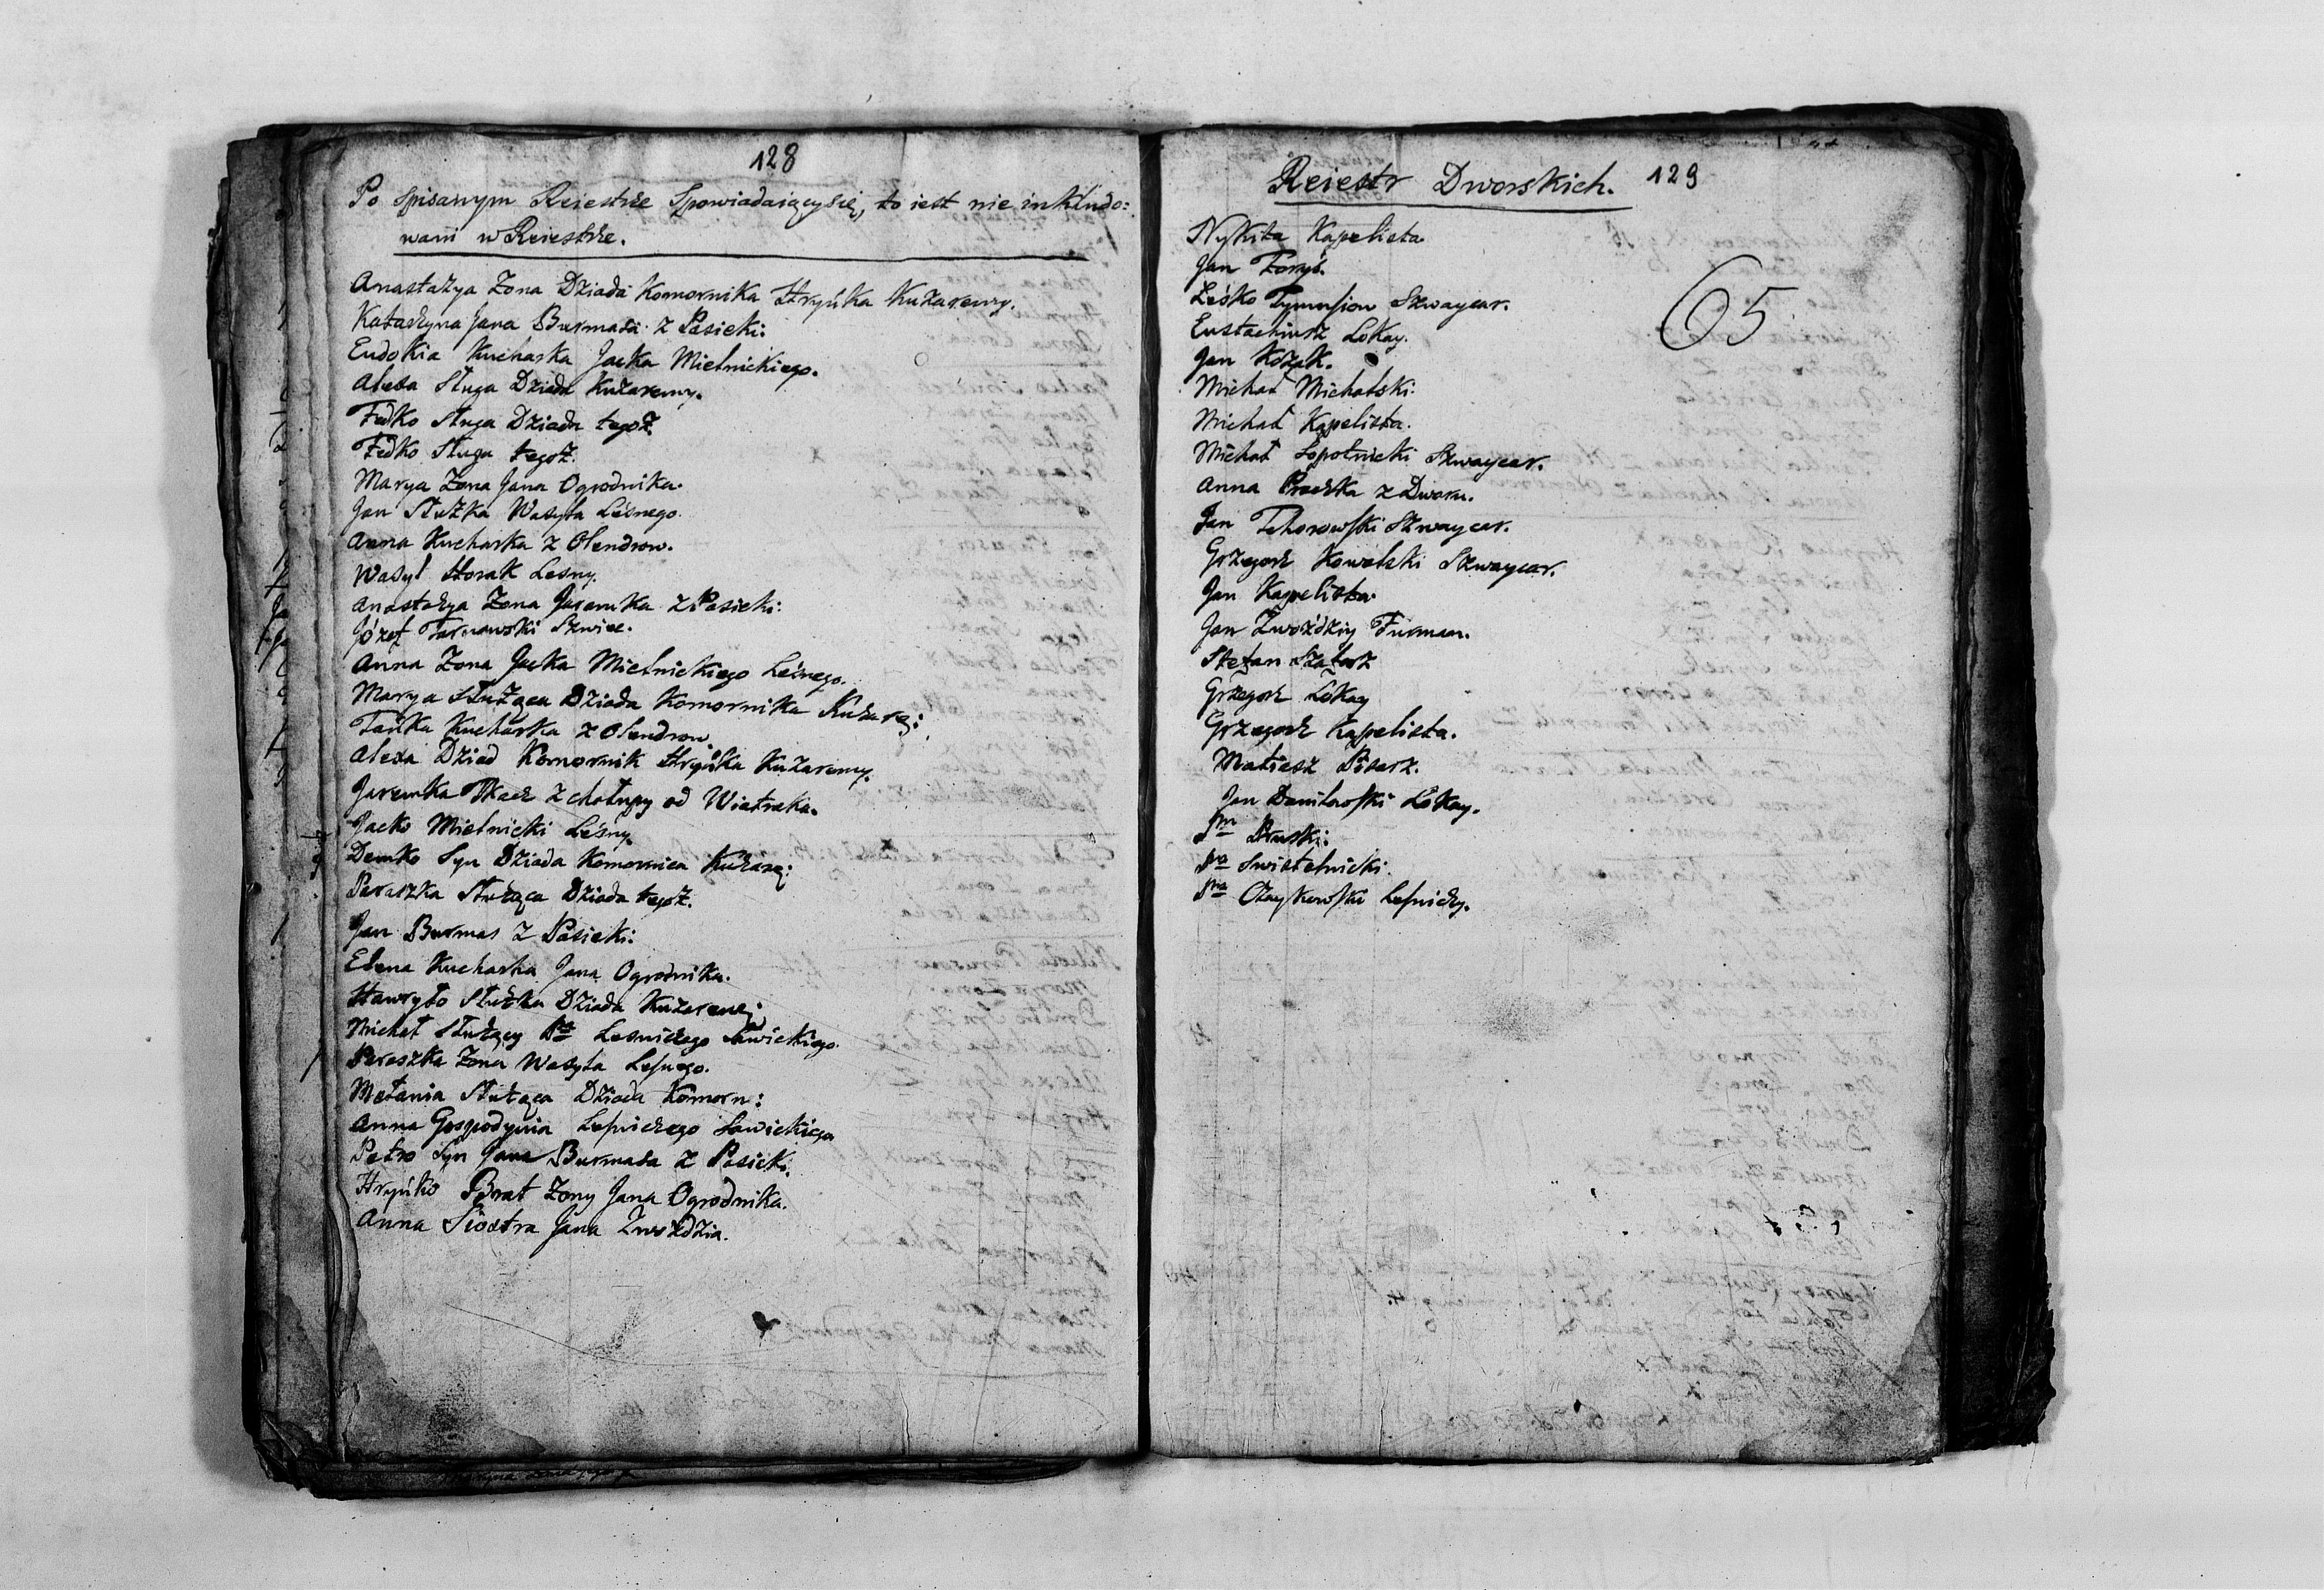 128
Po spisanym Reiestrze Spowiadaiącysię, to iest nie inkludo:
wani w Reiestrze.
Anastazya Zona Dziada Komornika Hryńka Kuzaremy.
Katarzyna Jana Burmasa z Pasieki:
Eudokia Kucharka Jacka Mielnickiego.
Alexa Sługa Dziada Kuzaremy.
Fedko Sługa Dziada tegoż
Fedko Sługa tegoż.
Marya Zona Jana Ogrodnika.
Jan Służka Wasyla Leśnego.
Anna Kucharka z Olendrow.
Wasyl Horak Leśny.
Anastazya Zona Jaremka z Pasieki:
Józef Tarnawski Szwiec.
Anna Zona Jacka Mielnickiego Leśnego.
Marya Służąca Dziada Komornika Kuzarę:
Tańka Kucharka z Olendrow.
Alexa Dziad Komornik Hryńka Kuzaremy.
Jaremka Tkacz z chałupy od Wiatraka.
Jacko Mielnicki Leśny.
Demko Syn Dziada Komornica Kuzarę:
Paraszka Służąca Dziada tegoż.
Jan Burmas z Pasieki:
Elena Kucharka Jana Ogrodnika.
Hawryło Służka Dziada Kuzaremę:
Michał Służący Pa Lesniczego Sawickiego.
Paraszka Zona Wasyla Leśnego.
Melania Służąca Dziada Komorn:
Anna Gospodynia Leśniczego Sawickiego
Petro Syn Jana Burmasa z Pasieki.
Hryńko Brat Zony Jana Ogrodnika.
Anna Siostra Jana Zwozdzia.
Reiestr Dworskich. 129
65
Nykita Kapelista.
Jan Foryś.
Leśko Szwaycar.
Eustachiusz Lokay.
Jan Kozak.
Michał Michalski.
Michał Kapelista.
Michał Łopotnicki Szwaycar.
Anna Praczka z Dworu.
Jan Tchorowski Szwaycar.
Grzegorz Kowalski Szwaycar.
Jan Kapelista.
Jan Zwozdziy Furman.
Stefan Szafarz
Grzegorz Lokay
Grzegorz Kapelista.
Matiasz Pisarz.
Jan Daniłowski Lokay.
Pruski:
Swistelnicki.
Czaykowski Lesniczy.